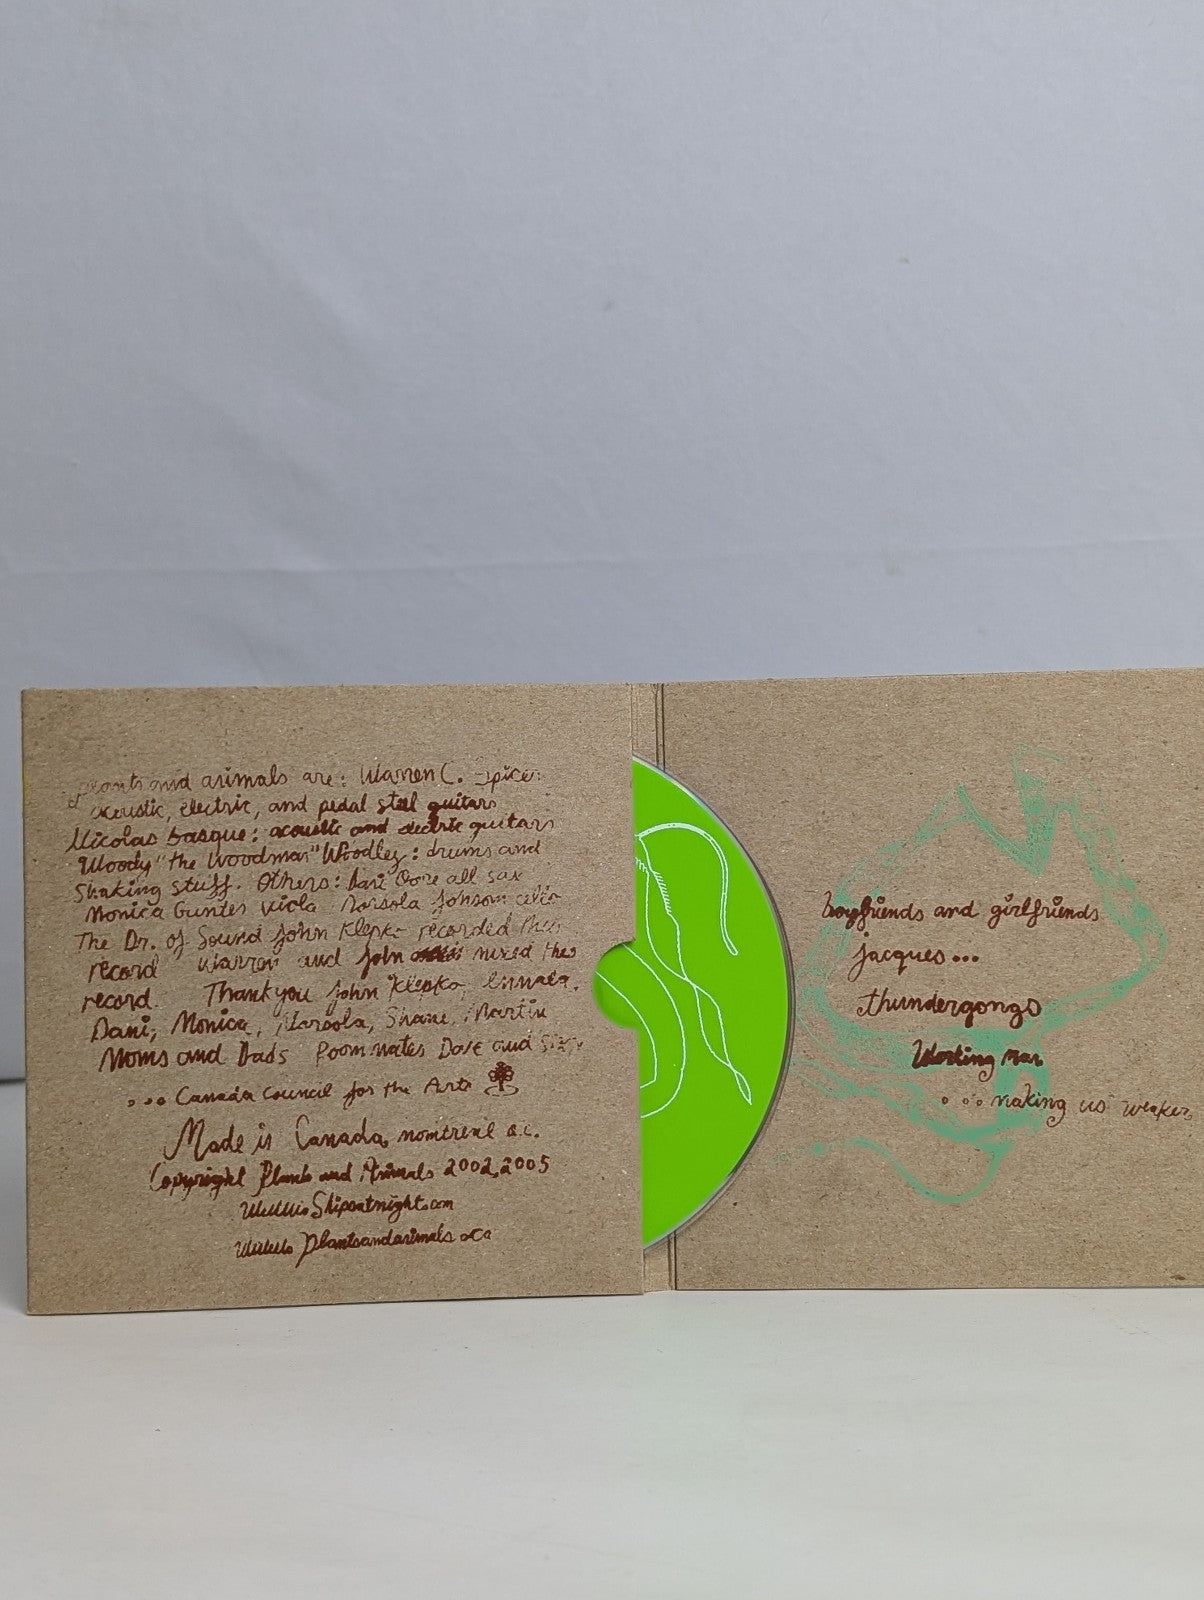 plants and animals are: Warren C. Spicer:
acoustic, electric, and pedal steel guitars
Nicolas Basque: acoustic and electric guitars
Woody "the Woodman" Woodley: drums and
Shaking stuff. Others: Dani Oore alto sax
Monica Gunter viola Johnson cello
The Dr. of Sound John Klepko recorded this
record Warren and John mixed this
record. Thank you John Klepko,
Dani, Monica, Shane, Martin
Moms and Dads Roommates Dave and
... Canada Council for the Arts
Made in Canada, montreal q.c.
Copyright Plants and Animals 2002, 2005
www.Shipsatnight.com
www.Plantsandanimals.ca
boyfriends and girlfriends
jacques...
thundergongs
Working man
...making us weaker